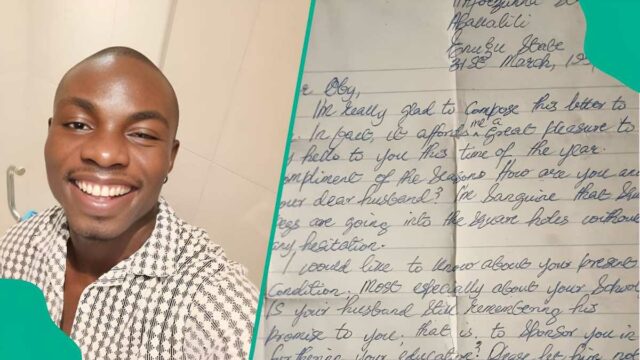 Abakaliki
Enugu State
31st March, 19
Oby,
I'm really glad to compose this letter to
. In fact, it affords me a great pleasure to
hello to you this time of the year.
ompliment of the Seasons How are you and
our dear husband? I'm Sanguine that Squ
egs are going into the square holes without
any hesitation.
I would like to know about your present
Condition. Most especially about your School
Is your husband Still remembering his
promise to you, that is, to Sponsor you in
furthering your education? Please let him not